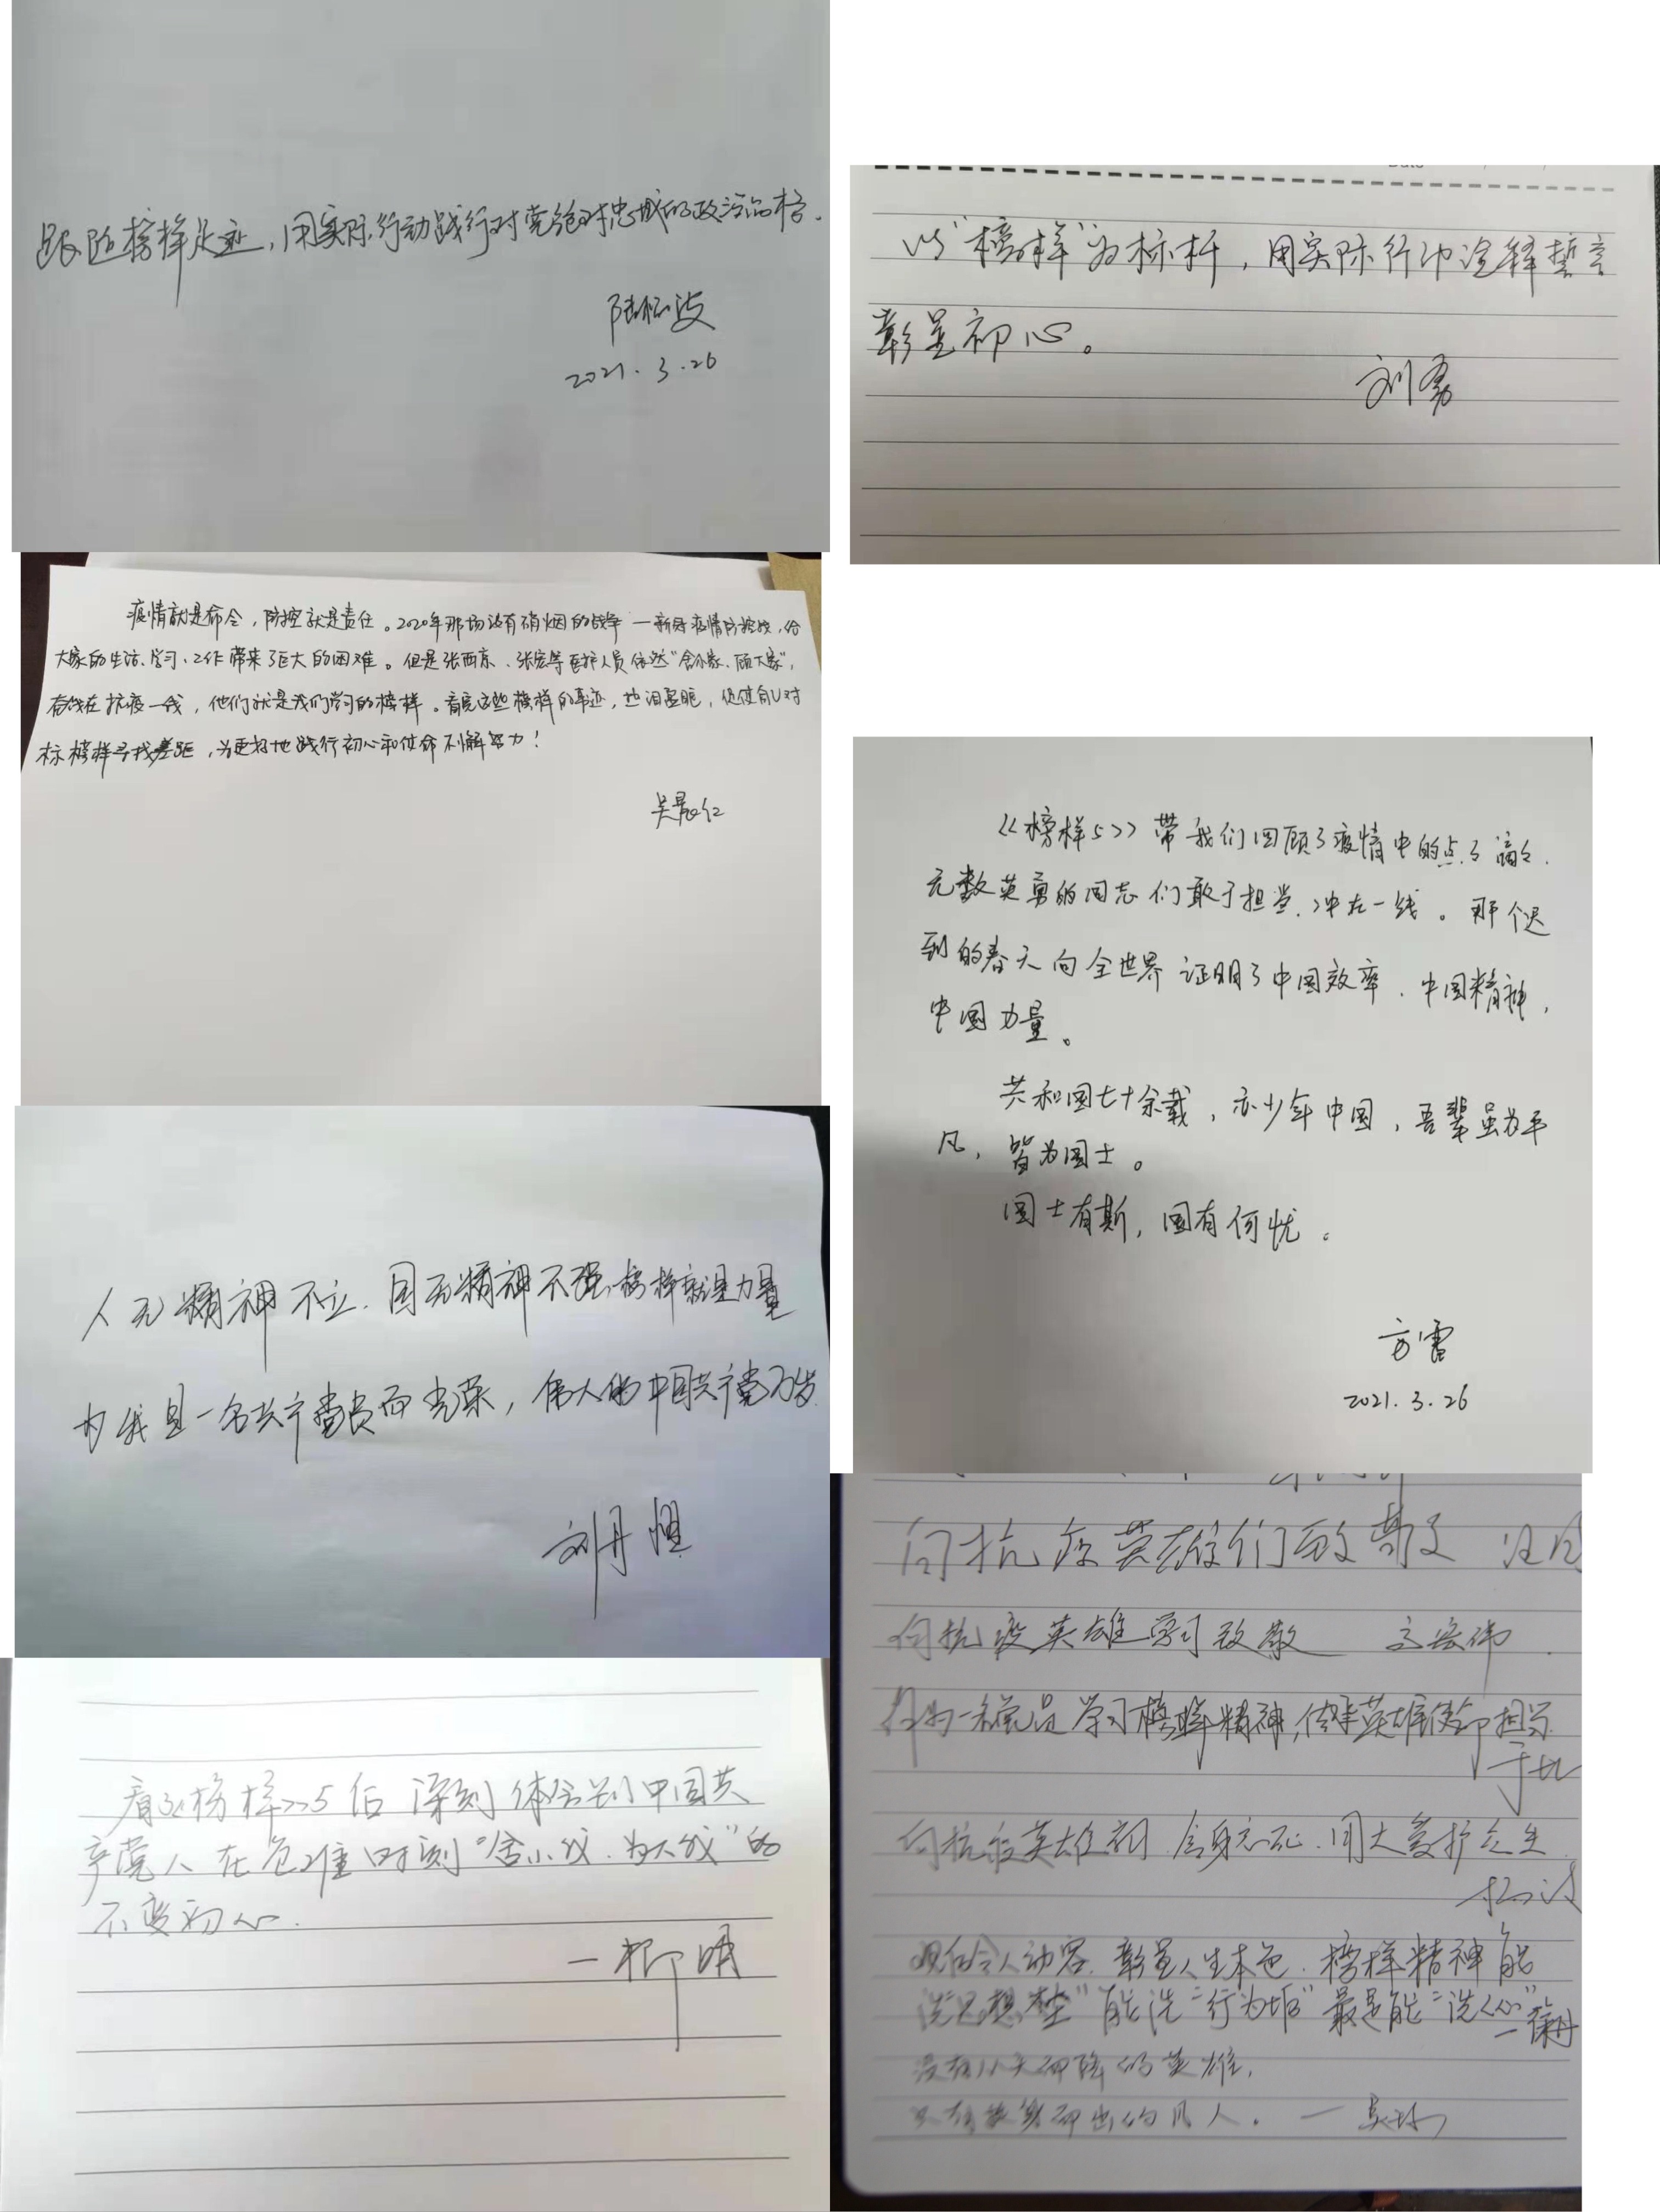 跟随榜样足迹，用实际行动践行对党绝对忠诚的政治品格．
2021.3.26
以“榜样”为标杆，用实际行动诠释誓言
彰显初心。
刘勇
疫情就是命令，防控就是责任。2020年那场没有硝烟的战争一新冠疫情防控战，给
大家的生活、学习、工作带来了巨大的困难。但是张西京、张宏等医护人员依然“舍小家、顾大家”，
奋战在抗疫一线，他们就是我们学习的榜样。看完这些榜样的事迹，热泪盈眶，促使自己对
标榜样寻找差距，为更好地践行初心和使命不懈努力！
吴晨红
《榜样5》带我们回顾了疫情中的点点滴滴．
无数英勇的同志们敢于担当、冲在一线。那个迟
到的春天向全世界证明了中国效率、中国精神，
中国力量。
共和国七十余载，亦少年中国，吾辈虽为平
凡，皆为国士。
国士有斯，国有何忧。
方雷
2021.3.26
人无精神不立．国无精神不强．榜样就是力量
为我是一名共产党员而光荣，伟大的中国共产党万岁
刘丹
看了《榜样》5后深刻体会到中国共
产党人在危难时刻“舍小我．为大我”的
不变初心．
一柳明
向抗疫英雄们致敬
向抗疫英雄学习致敬
作为一名党员学习榜样精神，传承英雄使命担当
向抗疫英雄 舍身忘死．用大爱护众生
令人动容．彰显人生本色．榜样精神能
洗“思想尘”能洗“行为垢”最是能“洗人心”
没有从天而降的英雄，
只有挺身而出的凡人。一